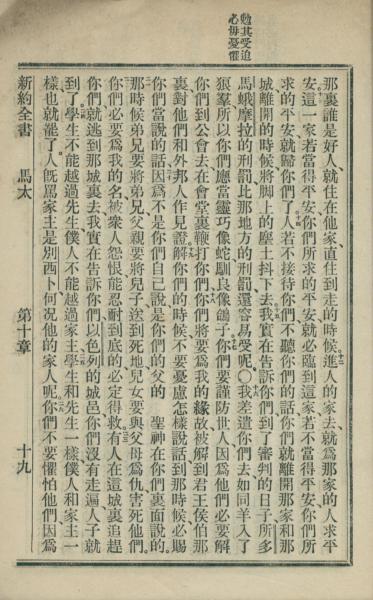 勉其受迫
必毋憂懼
那裏誰是好人就住在他家直住到走的時候進人的家去就爲那家的人求平
安這一家若當得平安你們所求的平安就必臨到這家若不當得平安你們所
求的平安就歸你們了人若不接待你們不聽你們的話你們就離開那家和那
城離開的時候將脚上的塵土抖下去我實在告訴你們到了審判的日子所多
馬蛾摩拉的刑罰比那地方的刑罰還容易受呢〇我差遣你們去如同羊入了
狼羣所以你們應當靈巧像蛇馴良像鴿子你們要謹防世人因爲他們必要解
你們到公會去在會堂裏鞭打你們你們將要爲我的緣故被解到君王侯伯那
裏對他們和外邦人作見證解你們的時候不要憂慮怎樣說話到那時候必賜
你們當說的話因爲不是你們自己說是你們的父的 聖神在你們裏面說的
那時候弟兄要將弟兄父親要將兒子送到死地兒女要與父母爲仇害死他們
你們必要爲我的名被衆人怨恨能忍耐到底的必定得救有人在這城裏追趕
你們就逃到那城裏去我實在告訴你們以色列的城邑你們沒有走遍人子就
到了學生不能越過先生僕人不能越過家主學生和先生一樣僕人和家主一
樣也就罷了人旣罵家主是別西卜何况他的家人呢你們不要懼怕他們因爲
新約全書 馬太 第十章 十九